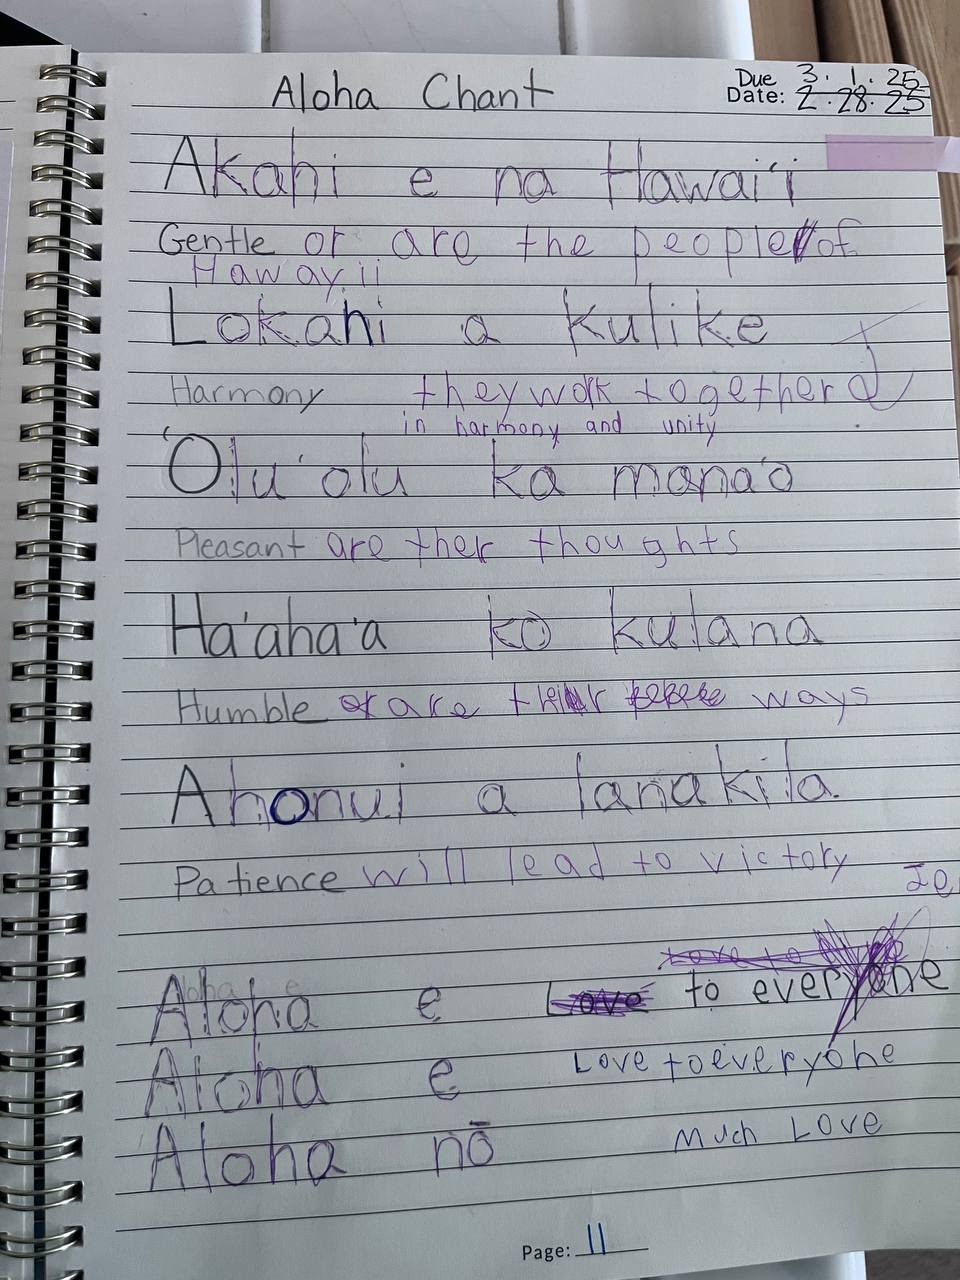 Aloha Chant
Due
Date: 3.1.25
2.28.25
Akahi e na Hawai'i
Gentle or are the people of
Hawayii
Lokahi a kulike
Harmony they work together
in harmony and unity
'Olu'olu ka mana'o
Pleasant are ther thoughts
Ha'aha'a ko kulana
Humble or are their ways
Ahonui a lanakila
Patience will lead to victory
Love to
Aloha e Love to everyone
Aloha e Love to everyone
Aloha nō Much Love
Page: 11